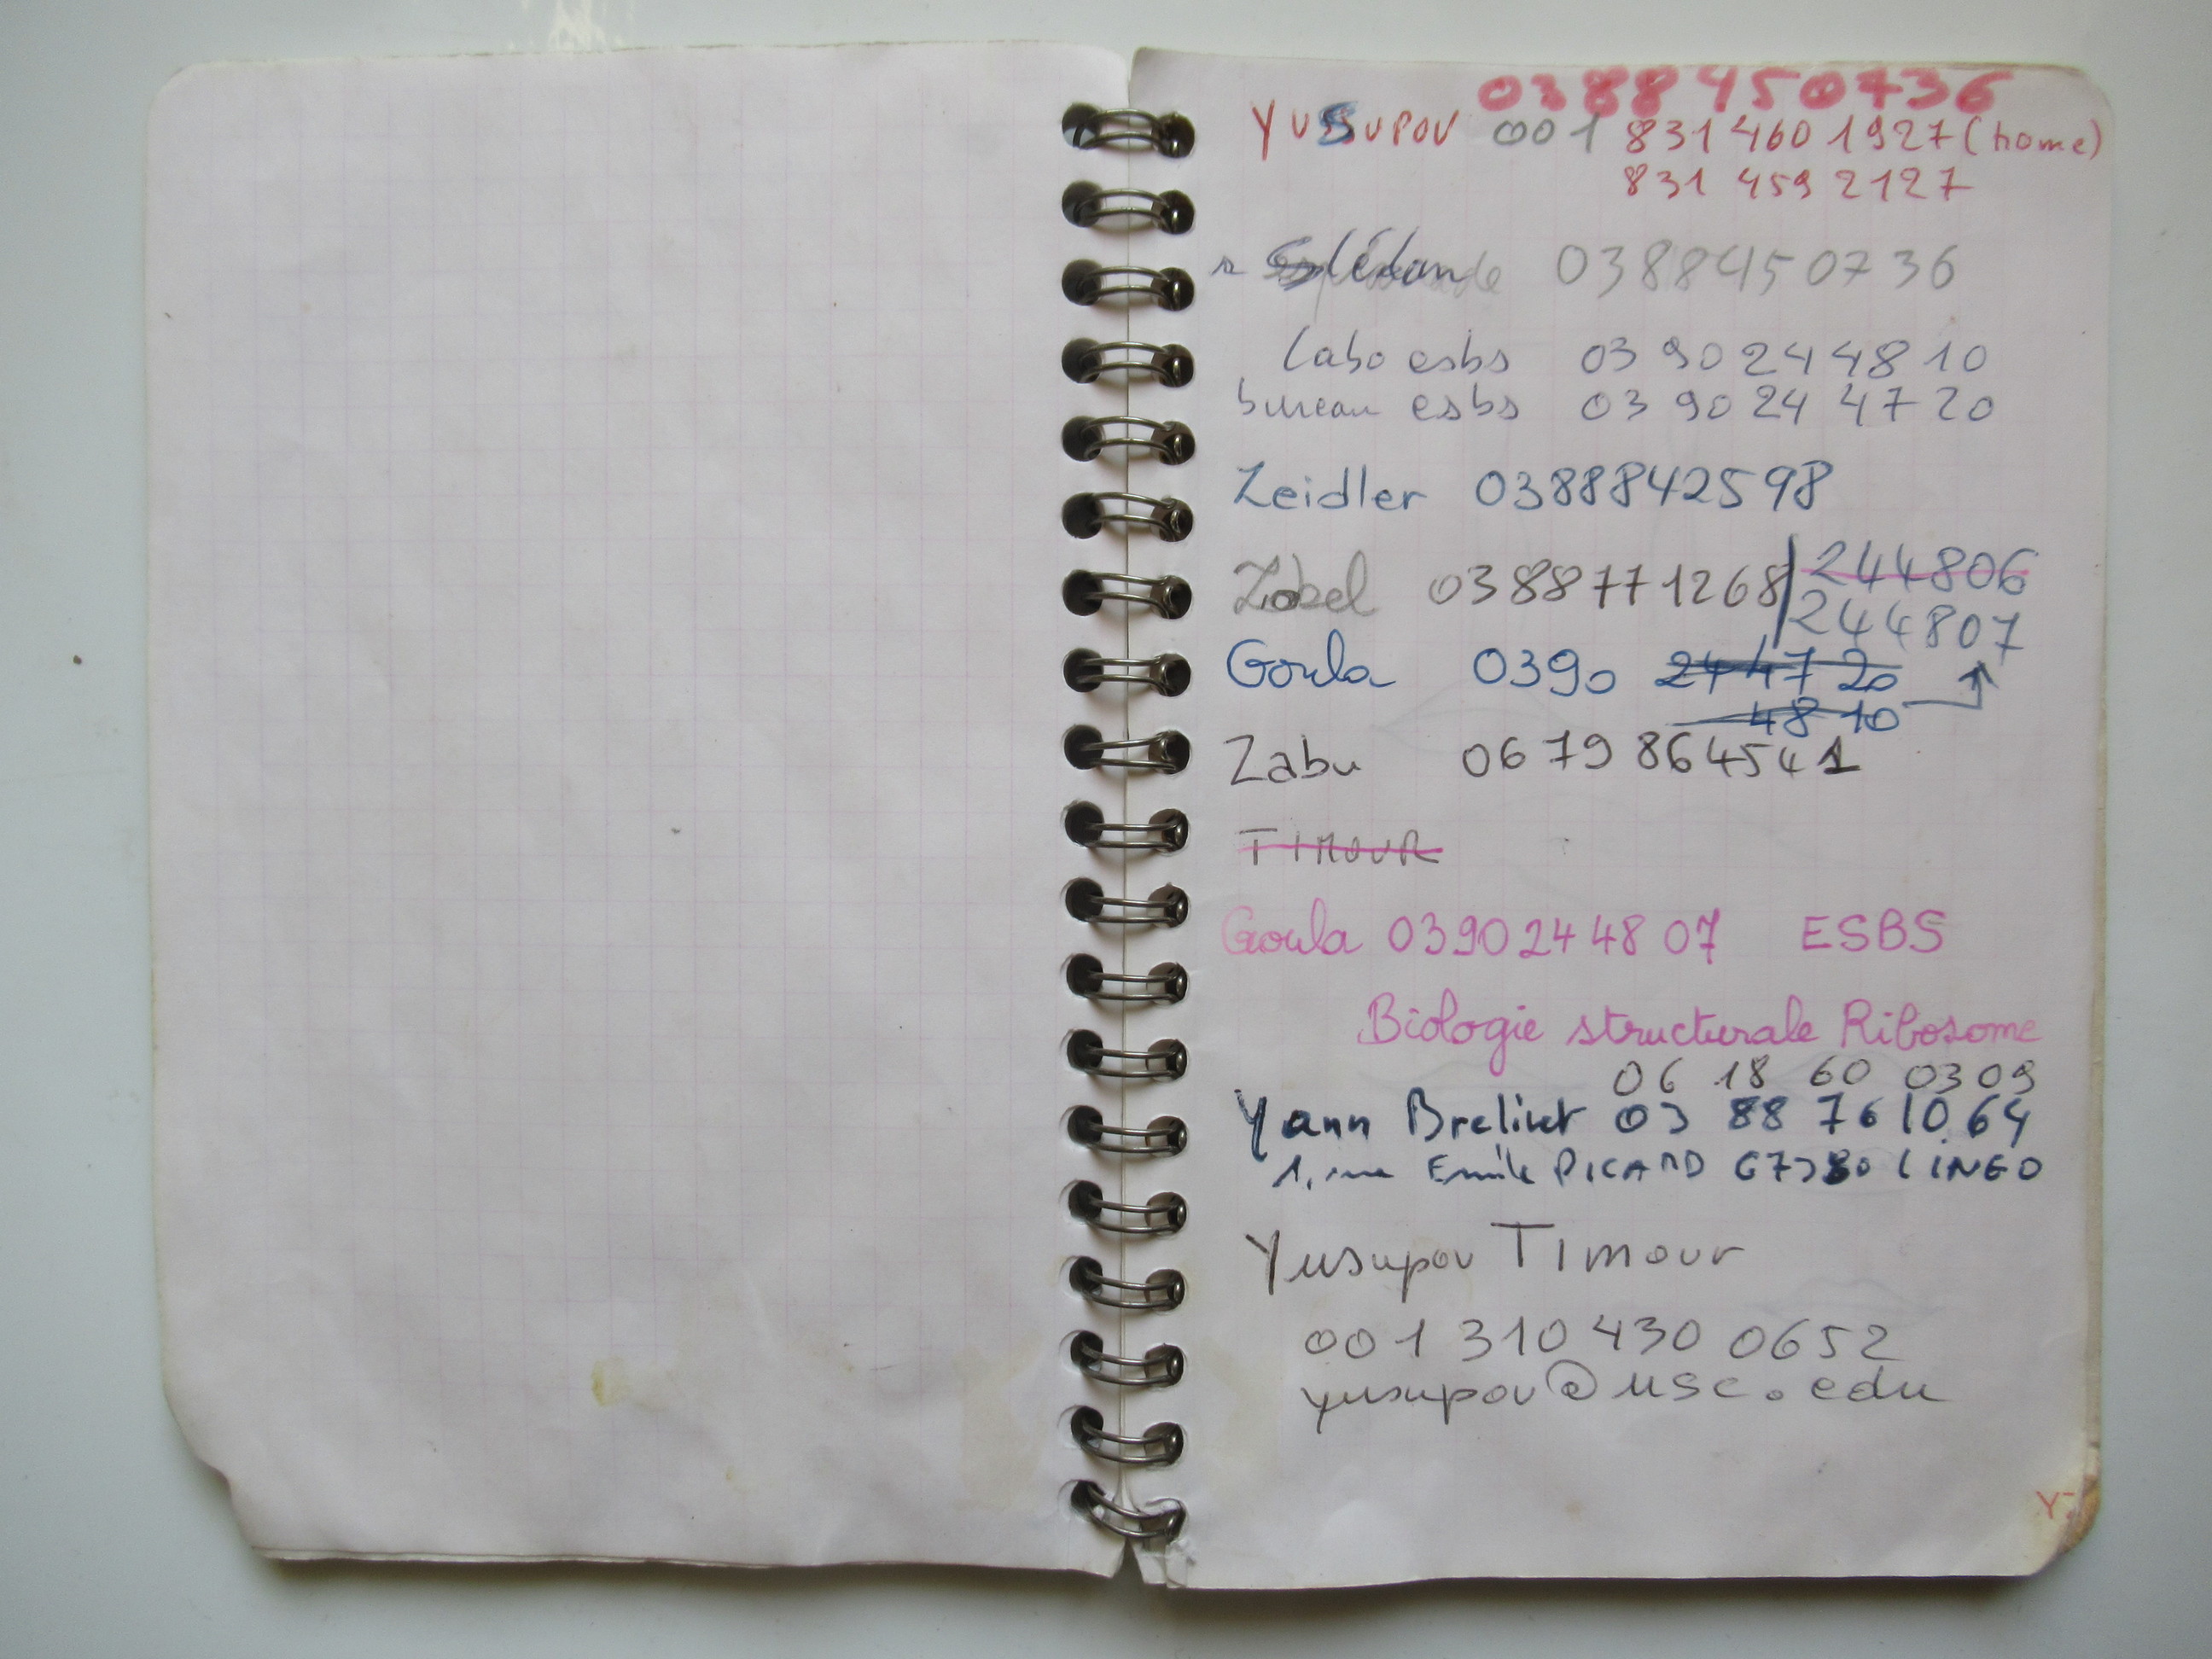 0388450736
YUSUPOV 001 831 460 1927 (home)
831 459 2127
0388450736
Labo esbs 03 90 24 48 10
bureau esbs 03 90 24 47 20
Zeidler 0388842598
Zabel 0388771268 244806
244807
Goula 0390 24 47 20
48 10
Zabu 06 79 864541
TIMOUR
Goula 0390 24 48 07 ESBS
Biologie structurale Ribosome
06 18 60 0309
Yann 03 88 76 10 64
1, rue Emile PICARD LINGO
Yusupov Timour
001 310 430 0652
yusupov@usc.edu